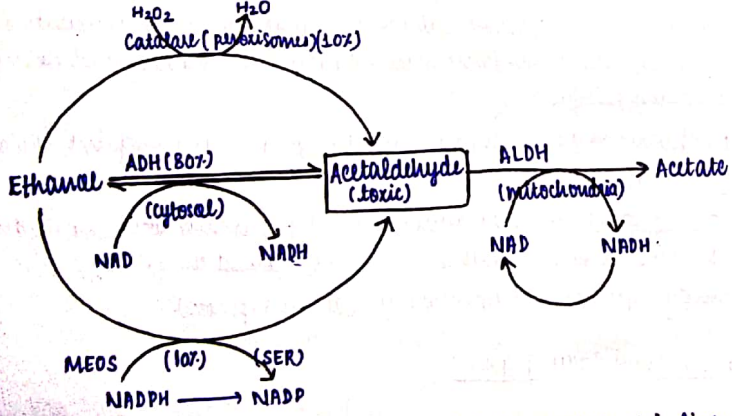 H₂O₂ H₂O
Catalase (peroxisomes) (10%)
ADH (80%)
Ethanol
(cytosol)
NAD
NADH
Acetaldehyde
(toxic)
ALDH
(mitochondria)
Acetate
NAD
NADH
MEOS (10%) (SER)
NADPH → NADP